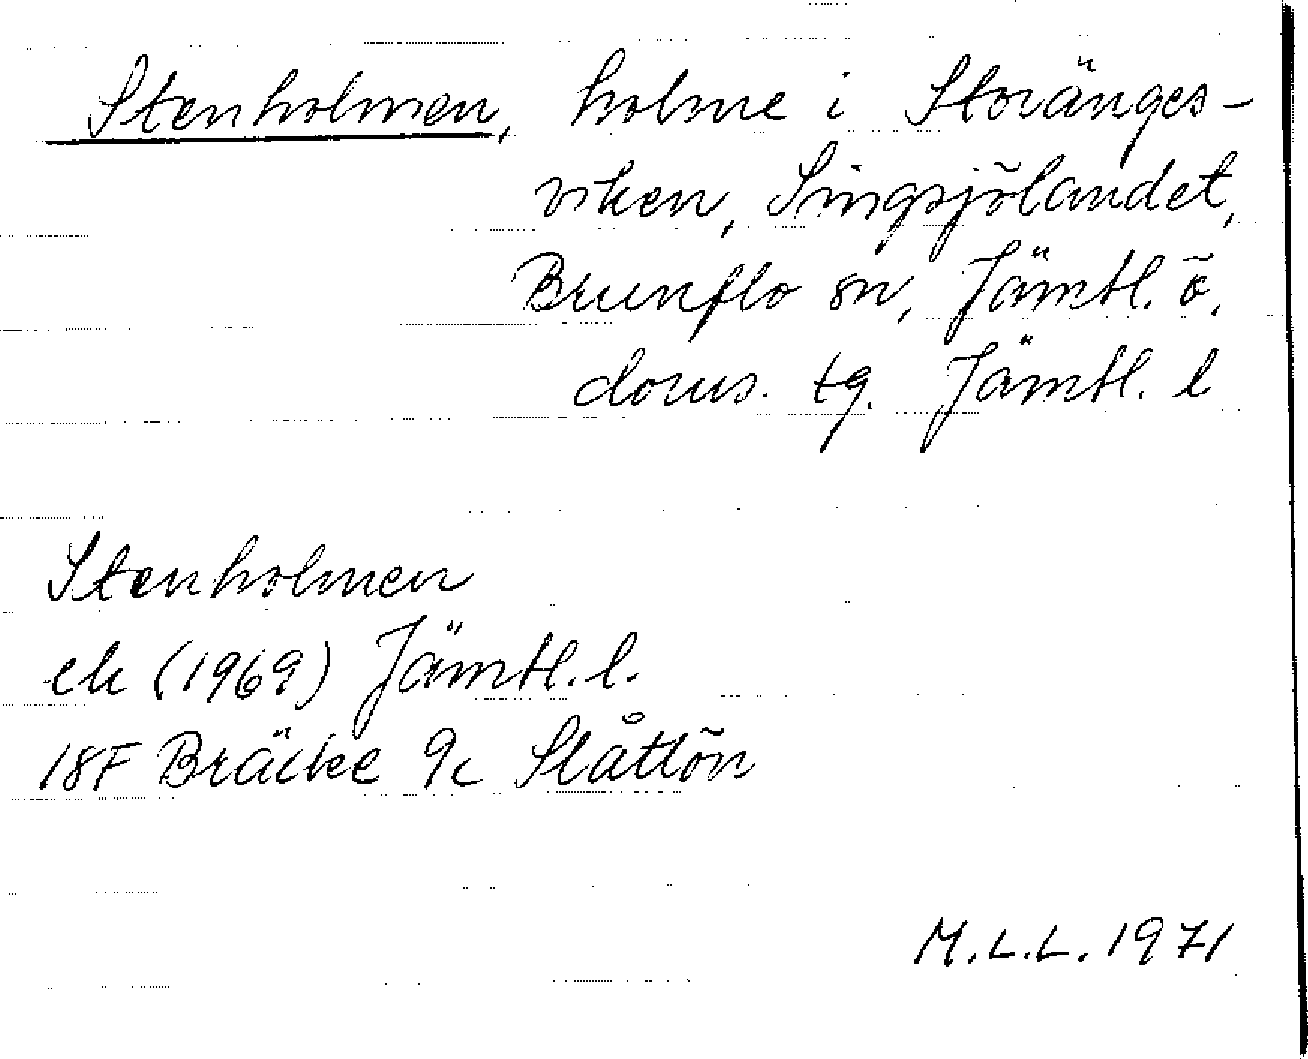 Stenholmen, holme i Storänges-
viken, Singsjölandet,
Brunflo sn, Jämtl. ö.
doms. tg. Jämtl. l
Stenholmen
ek (1969) Jämtl. l.
18F Bräcke 9c Slåttön
M.L.L. 1971